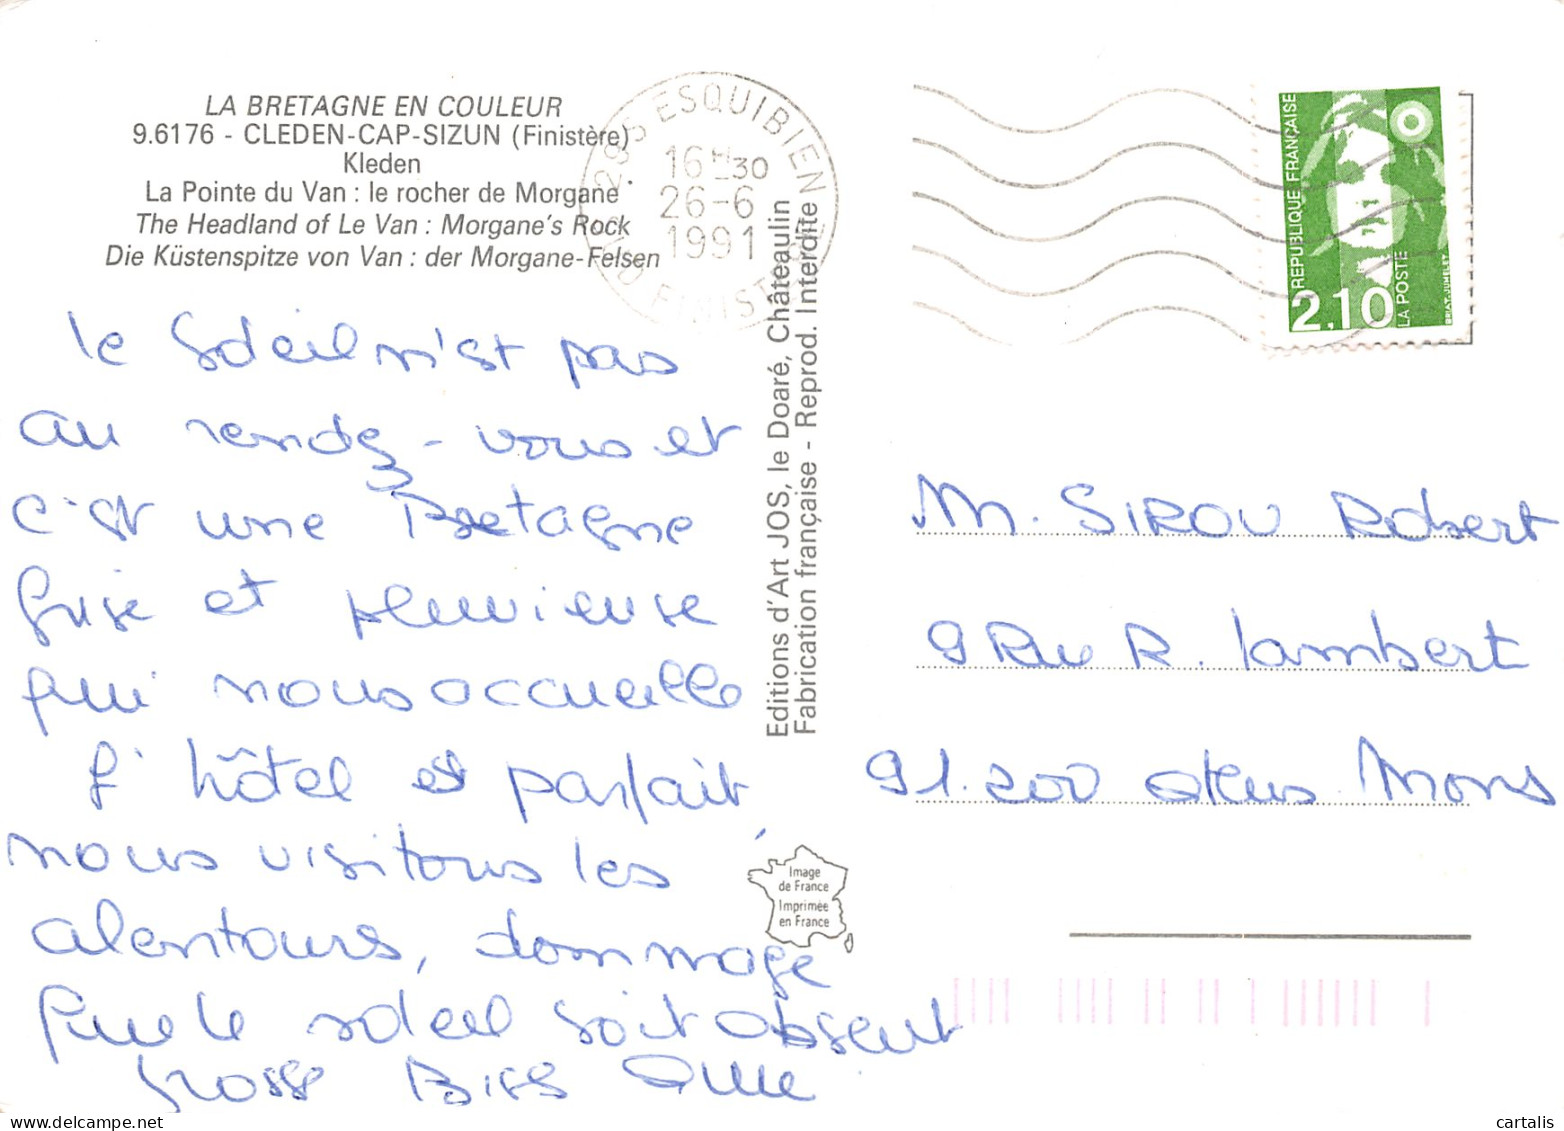 LA BRETAGNE EN COULEUR
9.6176 - CLEDEN-CAP-SIZUN (Finistère)
Kleden
La Pointe du Van : le rocher de Morgane
The Headland of Le Van : Morgane's Rock
Die Küstenspitze von Van : der Morgane-Felsen
ESQUIBIEN
16 H 30
26-6
1991
FINISTERE
RÉPUBLIQUE FRANÇAISE
2,10
LA POSTE
BRIAT-JUMELET
le soleil n'est pas
au rendez-vous et
c'est une Bretagne
grise et pluvieuse
qui nous accueille
L'hôtel est parfait,
nous visitons les
alentours, dommage
que le soleil soit absent
Grosse Bises
Editions d'Art JOS, le Doaré, Châteaulin
Fabrication française - Reprod. Interdite
M. SIROU Robert
9 Rue R. Lambert
91.200 Athis Mons
Image
de France
Imprimée
en France
cartalis